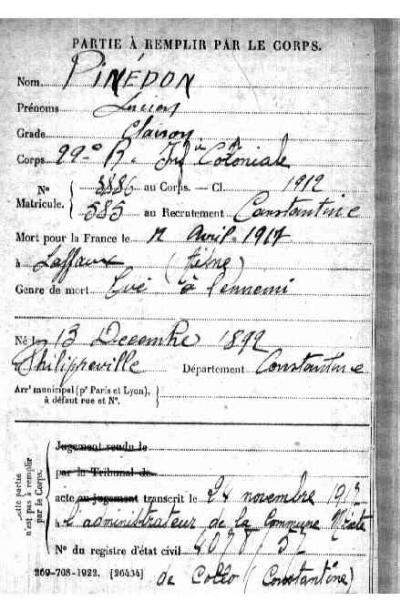 PARTIE À REMPLIR PAR LE CORPS.
Nom PINÉDON
Prénoms Lucien
Grade Clairon
Corps 99e R. Infie Coloniale
N° Matricule. 3886 au Corps. — Cl. 1912
585 au Recrutement Constantine
Mort pour la France le 12 avril 1917
à Laffaux (Aisne)
Genre de mort Tué à l'ennemi
Né le 13 Décembre 1892
à Philippeville Département Constantine
Arrt municipal (pr Paris et Lyon), à défaut rue et N°.
Cette partie n'est pas à remplir par le Corps.
Jugement rendu le
par le Tribunal de
acte ou jugement transcrit le 24 novembre 1917
à l'administrateur de la Commune Mixte
N° du registre d'état civil 4078/52
de Collo (Constantine)
269-708-1922. [26434]